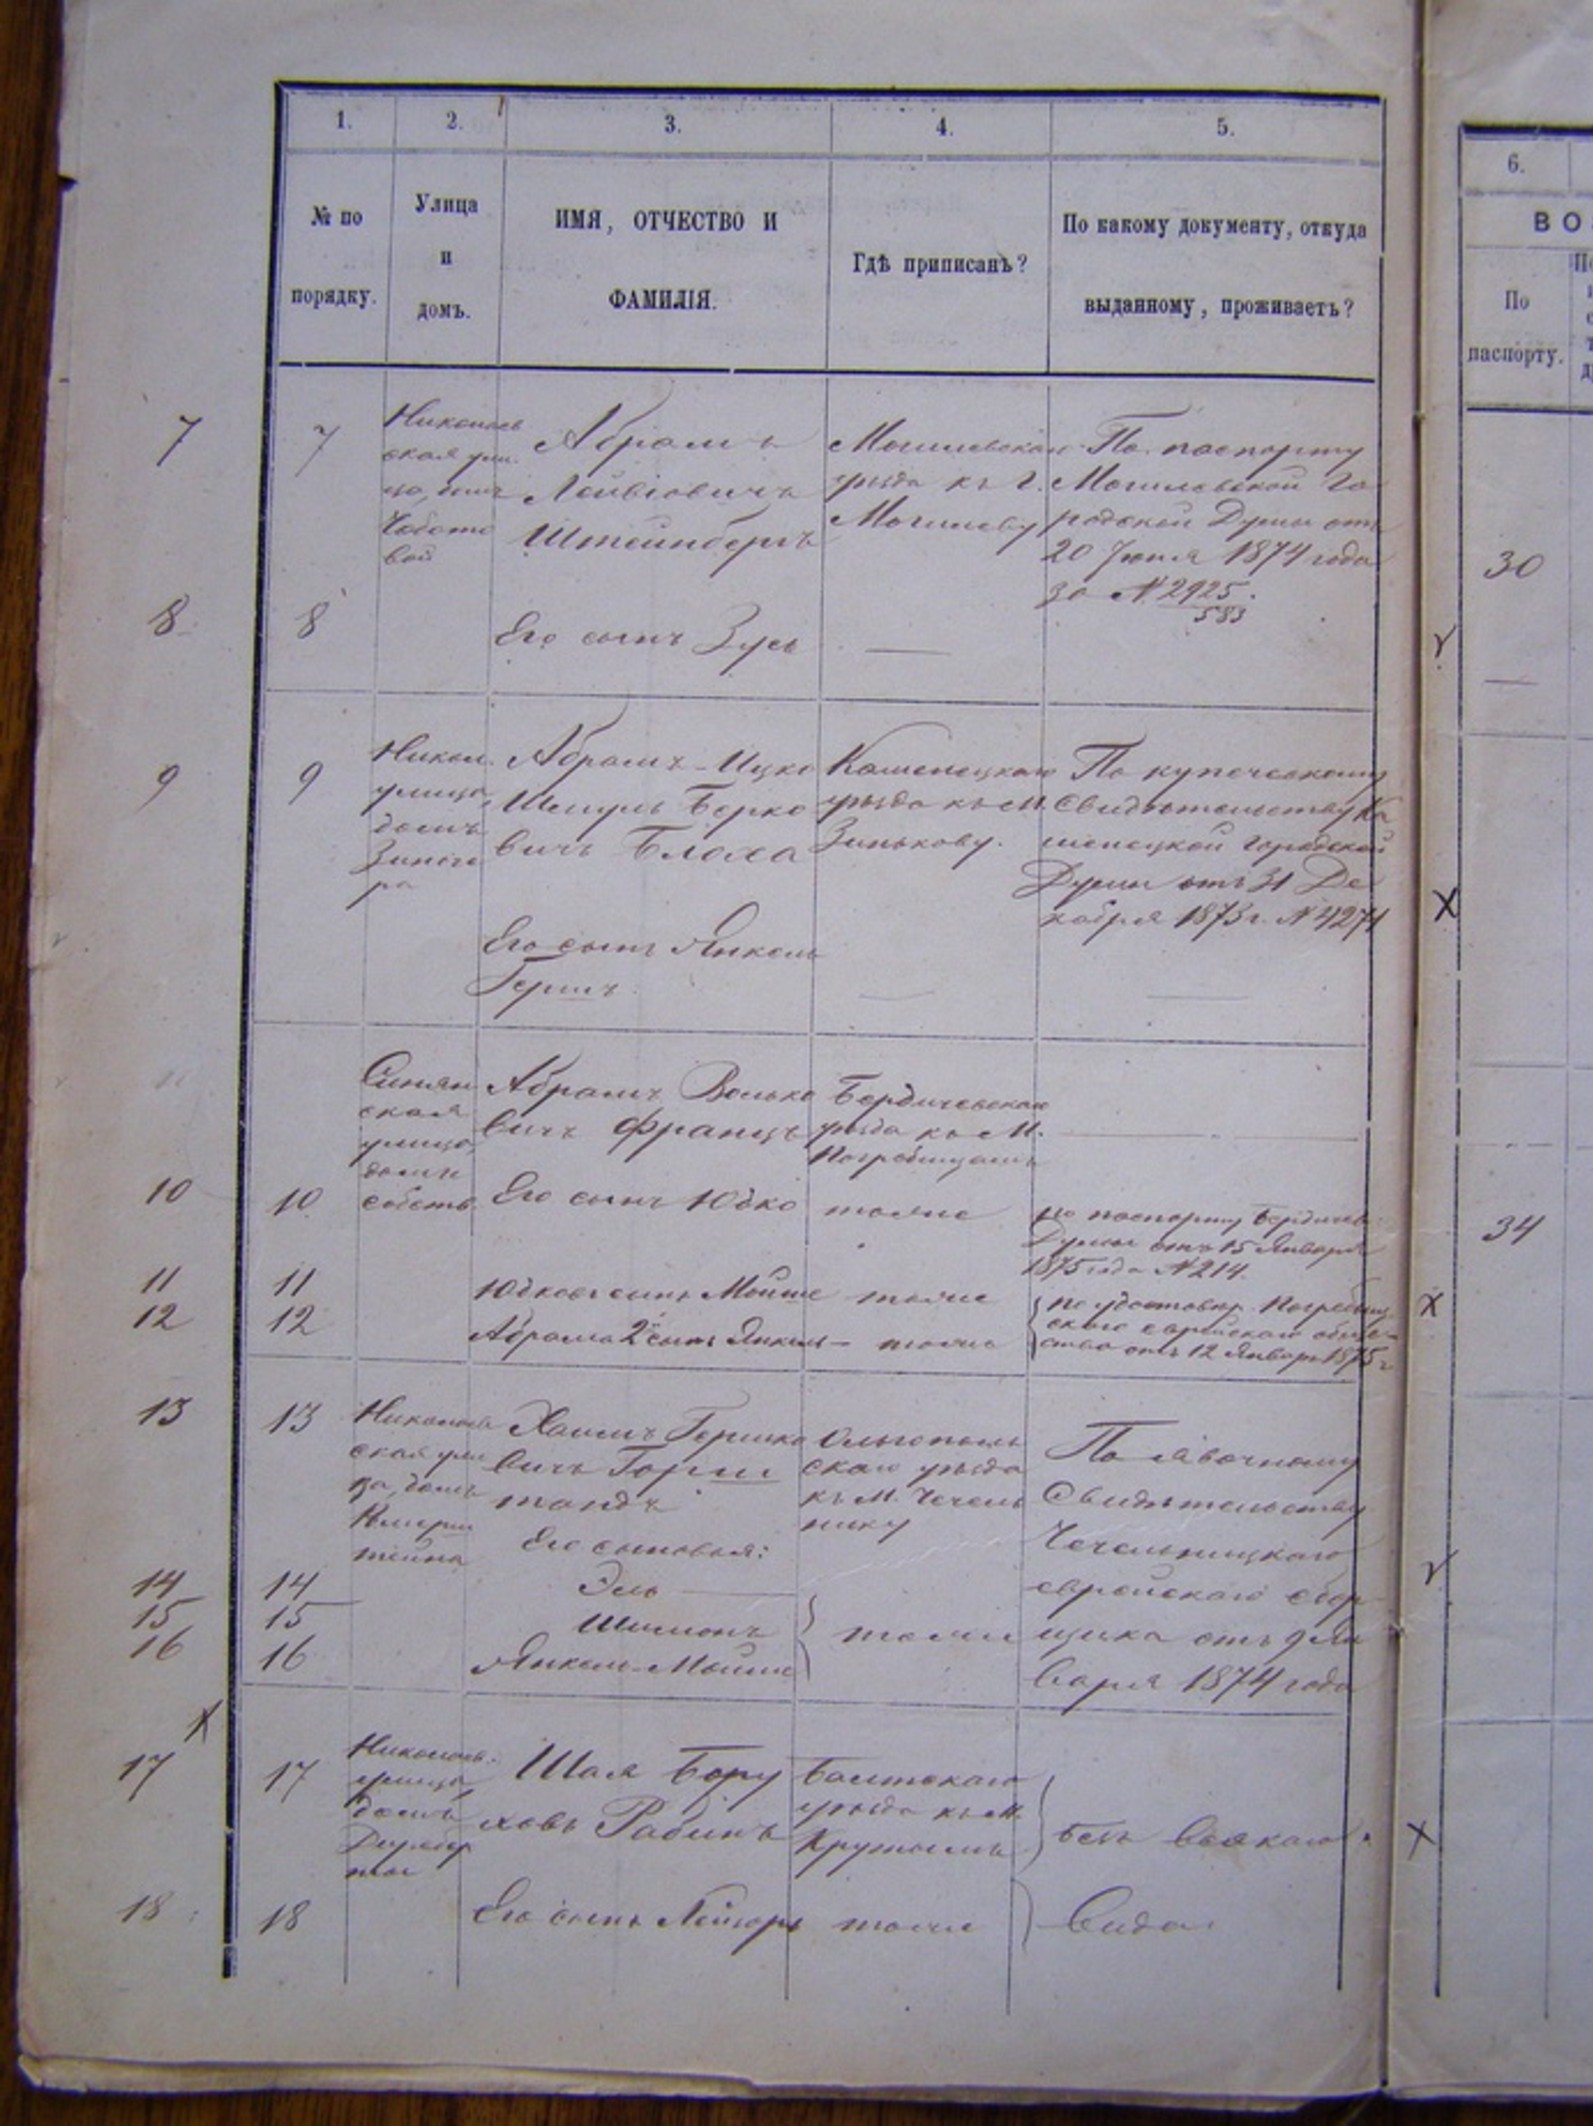 1.
2.
3.
4.
5.
№ по
порядку.
Улица
и
домъ.
ИМЯ, ОТЧЕСТВО И
ФАМИЛІЯ.
Гдѣ приписанъ?
По какому документу, откуда
выданному, проживаетъ?
6.
По
паспорту.
7
7
Николаев
ская ули
ца, домъ
Чабото
вой
Абрамъ
Лейвіовичъ
Штейнбергъ
Могилевскаго
уѣзда къ г.
Могилеву
По паспорту
Могилевской Го
родской Думы отъ
20 Іюня 1874 года
за № 2925.
583
30
8
8
Его сынъ Зусь
9
9
Никол.
улица
домъ
Абрамъ-Ицко
Шмуль Берко
вичъ Блоха
Каменецкаго
уѣзда къ М.
Зинькову.
По купеческому
Свидѣтельству Ка
менецкой Городской
Думы отъ 31 Де
кабря 1873 г. № 4271
Его сынъ Янкель
Гершъ
ская
улица,
домъ
собств.
Абрамъ Волько
вичъ Францъ
Бердичевскаго
уѣзда къ М.
Погребищамъ
10
10
Его сынъ Юдко
тоже
по паспорту Бердичев.
Думы отъ 15 Января
1875 года № 214.
34
11
11
Юдковъ сынъ Мойше
тоже
12
12
Абрама 2й сынъ Янкель
тоже
по удостовѣр. Погребищ
скаго еврейскаго обще
ства отъ 12 Января 1875 г
13
13
Николаев
ская ули
ца, домъ
Хаимъ Гершко
вичъ Горш
тандъ
Ольгополь
скаго уѣзда
къ М. Чечель
нику
По явочному
Свидѣтельству
Чечельницкаго
еврейскаго сбор
щика отъ 9 Ян
варя 1874 года
Его сыновья:
14
14
Эль
15
15
Шимонъ
тоже
16
16
Янкель-Мойше
17
17
Николаев.
улица
домъ
Шая Бору
ховъ Рабинъ
Балтскаго
уѣзда къ М.
Крутымъ
безъ всякаго
18
18
Его сынъ Лейзоръ
тоже
вида.